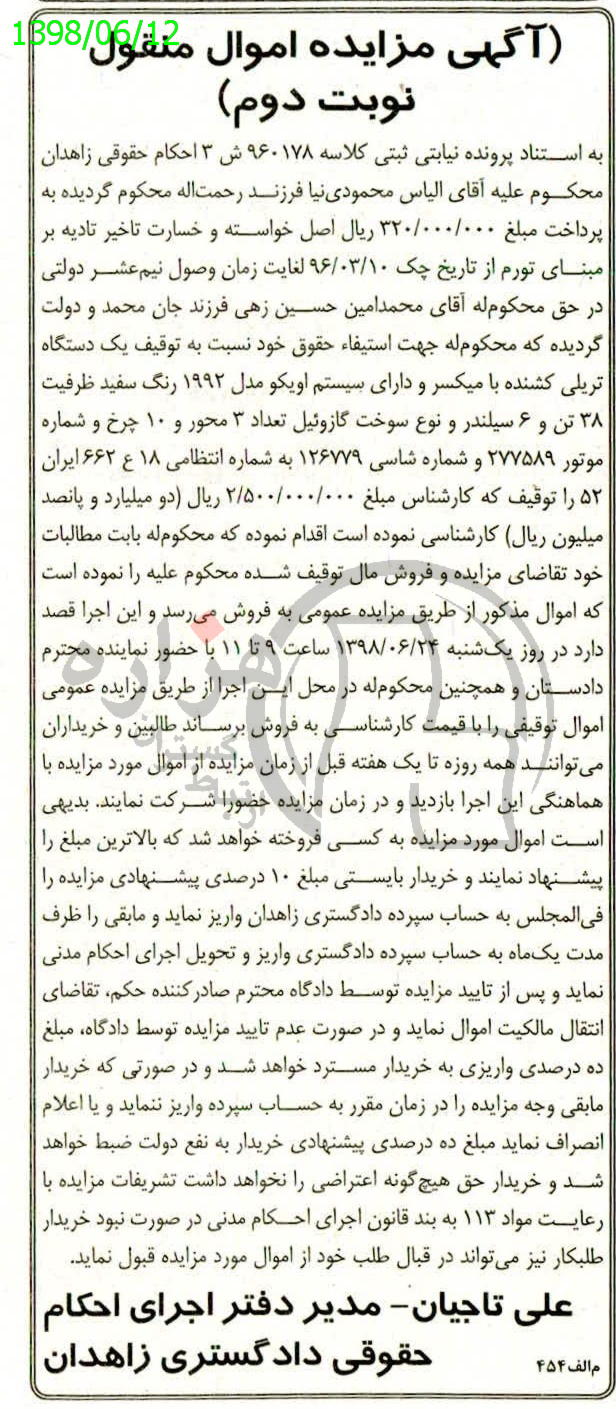 1398/06/12
(آگهی مزایده اموال منقول
نوبت دوم)
به استناد پرونده نیابتی ثبتی کلاسه ۹۶۰۱۷۸ ش ۳ احکام حقوقی زاهدان
محکوم علیه آقای الیاس محمودی‌نیا فرزند رحمت‌اله محکوم گردیده به
پرداخت مبلغ ۳۲۰/۰۰۰/۰۰۰ ریال اصل خواسته و خسارت تاخیر تادیه بر
مبنای تورم از تاریخ چک ۹۶/۰۳/۱۰ لغایت زمان وصول نیم‌عشر دولتی
در حق محکوم‌له آقای محمدامین حسین زهی فرزند جان محمد و دولت
گردیده که محکوم‌له جهت استیفاء حقوق خود نسبت به توقیف یک دستگاه
تریلی کشنده با میکسر و دارای سیستم اویکو مدل ۱۹۹۲ رنگ سفید ظرفیت
۳۸ تن و ۶ سیلندر و نوع سوخت گازوئیل تعداد ۳ محور و ۱۰ چرخ و شماره
موتور ۲۷۷۵۸۹ و شماره شاسی ۱۲۶۷۷۹ به شماره انتظامی ۱۸ ع ۶۶۲ ایران
۵۲ را توقیف که کارشناس مبلغ ۲/۵۰۰/۰۰۰/۰۰۰ ریال (دو میلیارد و پانصد
میلیون ریال) کارشناسی نموده است اقدام نموده که محکوم‌له بابت مطالبات
خود تقاضای مزایده و فروش مال توقیف شده محکوم علیه را نموده است
که اموال مذکور از طریق مزایده عمومی به فروش می‌رسد و این اجرا قصد
دارد در روز یک‌شنبه ۱۳۹۸/۰۶/۲۴ ساعت ۹ تا ۱۱ با حضور نماینده محترم
دادستان و همچنین محکوم‌له در محل این اجرا از طریق مزایده عمومی
اموال توقیفی را با قیمت کارشناسی به فروش برساند طالبین و خریداران
می‌توانند همه روزه تا یک هفته قبل از زمان مزایده از اموال مورد مزایده با
هماهنگی این اجرا بازدید و در زمان مزایده حضورا شرکت نمایند. بدیهی
است اموال مورد مزایده به کسی فروخته خواهد شد که بالاترین مبلغ را
پیشنهاد نمایند و خریدار بایستی مبلغ ۱۰ درصدی پیشنهادی مزایده را
فی‌المجلس به حساب سپرده دادگستری زاهدان واریز نماید و مابقی را ظرف
مدت یک‌ماه به حساب سپرده دادگستری واریز و تحویل اجرای احکام مدنی
نماید و پس از تایید مزایده توسط دادگاه محترم صادرکننده حکم، تقاضای
انتقال مالکیت اموال نماید و در صورت عدم تایید مزایده توسط دادگاه، مبلغ
ده درصدی واریزی به خریدار مسترد خواهد شد و در صورتی که خریدار
مابقی وجه مزایده را در زمان مقرر به حساب سپرده واریز ننماید و یا اعلام
انصراف نماید مبلغ ده درصدی پیشنهادی خریدار به نفع دولت ضبط خواهد
شد و خریدار حق هیچ‌گونه اعتراضی را نخواهد داشت تشریفات مزایده با
رعایت مواد ۱۱۳ به بند قانون اجرای احکام مدنی در صورت نبود خریدار
طلبکار نیز می‌تواند در قبال طلب خود از اموال مورد مزایده قبول نماید.
علی تاجیان- مدیر دفتر اجرای احکام
حقوقی دادگستری زاهدان
م‌الف۴۵۴
هزاره